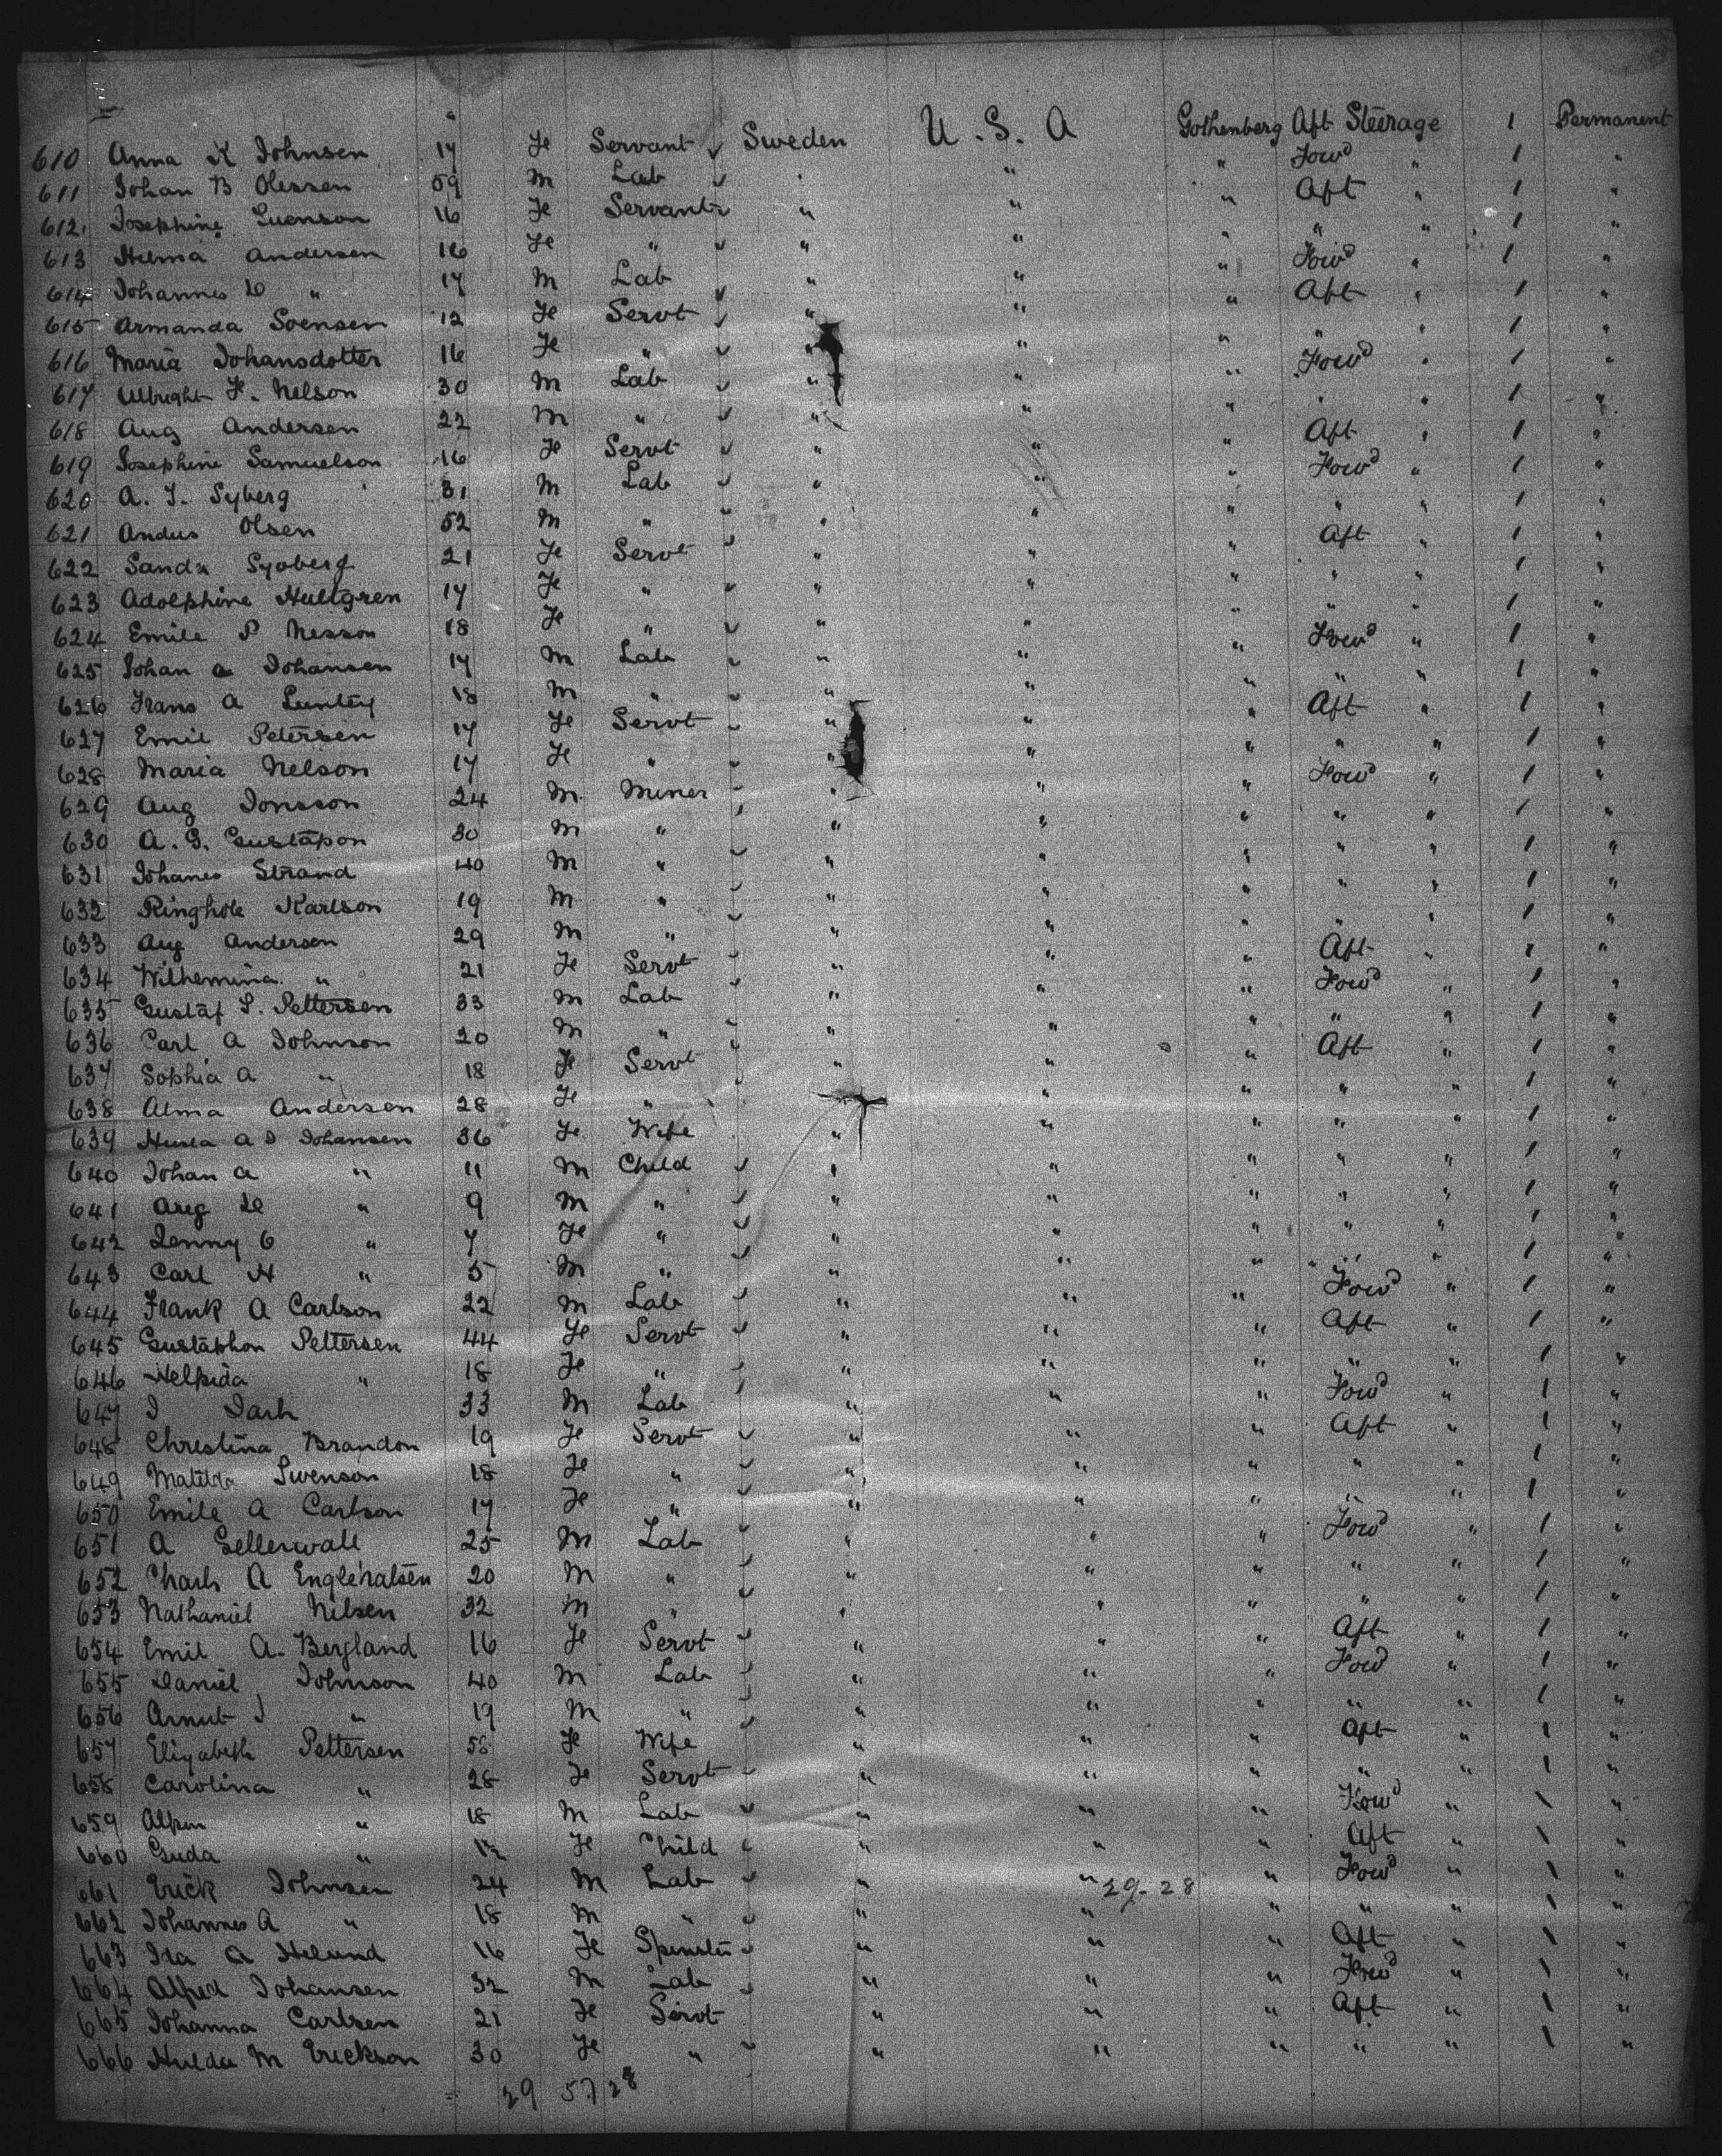 610 Anna K Johnsen 17 Fe Servant Sweden U.S.A Gothenberg Aft Steerage 1 Permanent
611 Johan B Olessen 59 M Lab " " " Fowd " 1 "
612 Josephine Suenson 16 Fe Servant " " " Aft " 1 "
613 Helma Andersen 16 Fe " " " " " " 1 "
614 Johannes " 17 M Lab " " " Fowd " 1 "
615 Armanda Soensen 12 Fe Servt " " " Aft " 1 "
616 Maria Johansdotter 16 Fe " " " " " " 1 "
617 Albright F. Nelson 30 M Lab " " " Fowd " 1 "
618 Aug Andersen 22 M " " " " " " 1 "
619 Josephine Samuelson 16 Fe Servt " " " Aft " 1 "
620 A. J. Syberg 31 M Lab " " " Fowd " 1 "
621 Andus Olsen 52 M " " " " " " 1 "
622 Sanda Syoberg 21 Fe Servt " " " Aft " 1 "
623 Adolphine Hultgren 17 Fe " " " " " " 1 "
624 Emile P Nesson 18 Fe " " " " " " 1 "
625 Johan A Johansen 17 M Lab " " " Fowd " 1 "
626 Frans A 18 M " " " " " " 1 "
627 Emil Petersen 17 Fe Servt " " " Aft " 1 "
628 Maria Nelson 17 Fe " " " " " " 1 "
629 Aug Jonsson 24 M Miner " " " Fowd " 1 "
630 A. G. Gustafson 30 M " " " " " " 1 "
631 Johanes Strand 40 M " " " " " " 1 "
632 Ringhole Karlson 19 M " " " " " " 1 "
633 Aug Andersen 29 M " " " " " " 1 "
634 Wilhemina " 21 Fe Servt " " " Aft " 1 "
635 Gustaf S. Pettersen 33 M Lab " " " Fowd " 1 "
636 Carl A Johnson 20 M " " " " " " 1 "
637 Sophia A " 18 Fe Servt " " " Aft " 1 "
638 Alma Andersen 28 Fe " " " " " 1 "
639 A D Johansen 36 Fe Wife " " " " " 1 "
640 Johan A " 11 M Child " " " " " 1 "
641 Aug " 9 M " " " " " " 1 "
642 Jenny C " 7 Fe " " " " " " 1 "
643 Carl H " 5 M " " " " " " 1 "
644 Frank A Carlson 22 M Lab " " " Fowd " 1 "
645 Gustaphon Pettersen 44 Fe Servt " " " Aft " 1 "
646 Helpida " 18 Fe " " " " " " 1 "
647 J Dark 33 M Lab " " " Fowd " 1 "
648 Christina Brandon 19 Fe Servt " " " Aft " 1 "
649 Matilda Swenson 18 Fe " " " " " " 1 "
650 Emile A Carlson 17 Fe " " " " " " 1 "
651 A Sellerwall 25 M Lab " " " Fowd " 1 "
652 Charls A Englehalsen 20 M " " " " " " 1 "
653 Nathaniel Nilsen 32 M " " " " " " 1 "
654 Emil A. Bergland 16 Fe Servt " " " Aft " 1 "
655 Daniel Johnson 40 M Lab " " " Fowd " 1 "
656 Arnut J " 19 M " " " " " " 1 "
657 Elizabeth Pettersen 58 Fe Wife " " " Aft " 1 "
658 Carolina " 28 Fe Servt " " " " " 1 "
659 " 18 M Lab " " " Fowd " 1 "
660 Guda " 12 Fe Child " " " Aft " 1 "
661 Erick Johnsen 24 M Lab " " 29-28 " Fowd " 1 "
662 Johannes A " 18 M " " " " " " 1 "
663 Ida A Helund 16 Fe Spinster " " " Aft " 1 "
664 Alfred Johansen 32 M Lab " " " Fowd " 1 "
665 Johanna Carlsen 21 Fe Servt " " " Aft " 1 "
666 Hulda M Erickson 30 Fe " " " " " " 1 "
29 57 28